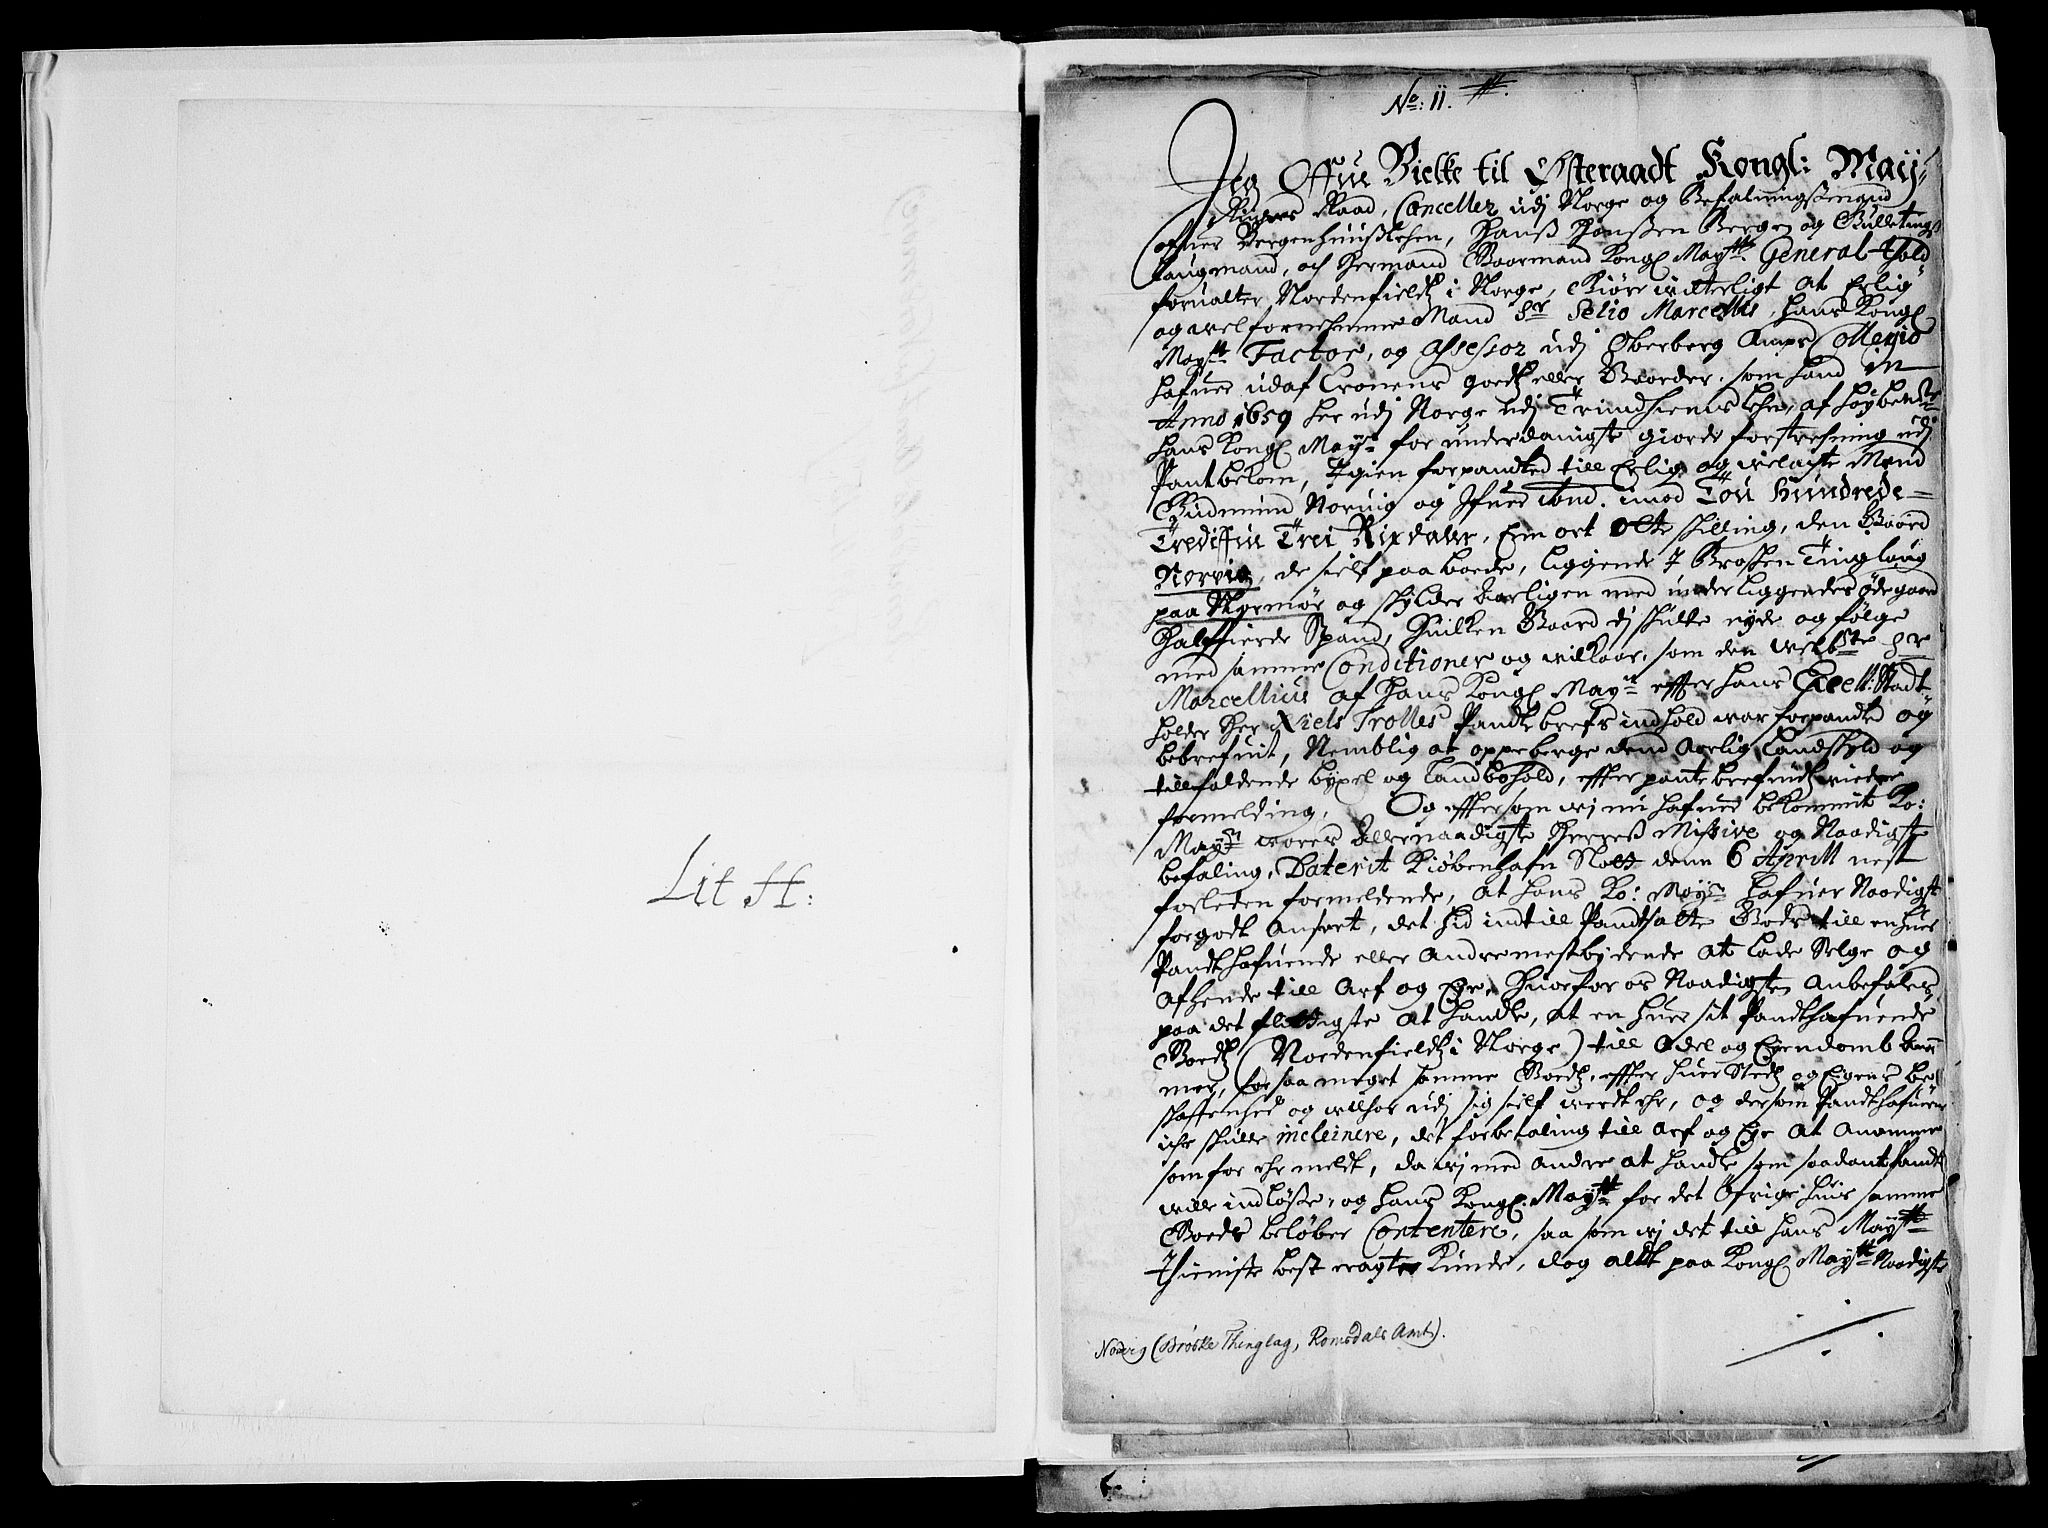 Lit H:
No: 11.
Jeg Offue Bielke til Østeraadt Kongl: Maÿ:
Raad, Canceller udj Norge og Befalningsmand
ofuer Bergenhuußlehen, Hanß Hanßen Bergen og Gulletings
Laugmand, och Herman Gaarmand Kongl Maytts General-thold
forualter Nordenfieldz i Norge, Giøre witterligt at Erlig
og welfornehmme Mand Sr Selio Marcellis, hans Kongl
Maytts Factor, og Assessor udj Oberberg Ampts Collegio
hafuer udaf Cronens goedtz eller Gaarder, som hand in
Anno 1659 her udj Norge udj Trundhiems Lehn, af høybemte
hans Kongl Maytt for underdanigste giorde forstrekning udj
Pant bekom, Igien forpandted till Erlig og wiel acte Mend
Gudmund Noruig og Ifuer imod Tou Hundrede
Trediffue Trei Rixdaler, Een ort Otte skilling, den Gaard
Norvig, de sielf paa boede, liggende I Brøshen Tinglaug
paa Normør og skylder Aarligen med underliggendes ødegaard
Halffierde Spand, Huilken Gaard dj skulle nyde og følge
med samme Conditioner og wilkaar, som den welbte Sr
Marcellius af Hans Kongl Maytt effter hans Excell: Stadt-
holder Her Niels Trolles Pandtebrefs indhold war forpandted og
bebrefuit, Nemblig at oppeberge dend Aarlig Landskyld og
tillfaldende byxel og Landbohold, effter pantebrefuidz widere
formelding, Og effter som wj nu hafuer bekommit Ko:
Maytts vores Allernaadigste Herres Missive og Naadigste
befaling, Daterit Kiøbenhafn Slott denn 6 Aprill nest
forleden formeldende, at hans Ko: Maytt hafuer Naadigst
forgodt ansett, det hid indtill Pandsatte Godz till en huer
Pandthafuende eller Andre mestbydende at lade Selge og
Afhende till Arf og Eye, Huorfor os Naadigsten Anbefales,
paa det flittigste at handle, at en huer sit Pandthafuende
Goedtz (Nordenfieldtz i Norge) till Odel og Eyendomb
mer, for saa meget samme Goedtz, effter huer Stedtz og Egens be-
skaffenhed og willkor udj sig sielf werdt ehr, og dersom Pandthafueren
iche skulle incleinere, det forbetaling till Arf og Eye at Anamme
som for ehr meldt, da wj med andre at handle som saadant Pandt
wille indløsse, og hans Kongl. Maytt for det Øfrige huis samme
Goeds beløber Contentere, saa som wj det till hans Maytts
Thieniste best eragte Kunde, dog altt paa Kongl Maytts Naadigste
Norvig (Brøske Thinglag, Romsdals Amt).